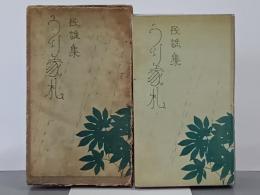 民謡集
うり家札
民謡集
うり家札